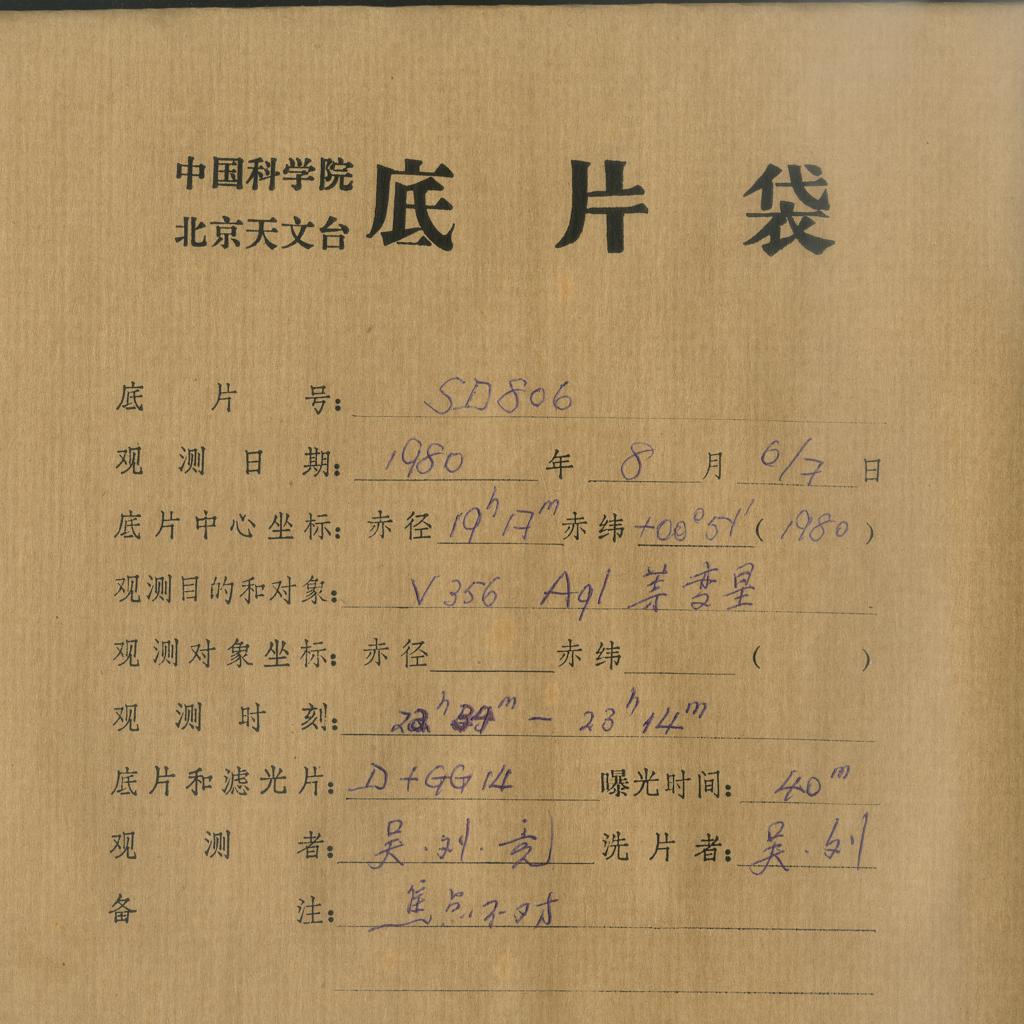 中国科学院
北京天文台
底片袋
底片号: SD806
观测日期: 1980年8月6/7日
底片中心坐标: 赤径19ʰ17ᵐ赤纬+00°51′(1980)
观测目的和对象: V356 Aql 等变星
观测对象坐标: 赤径 赤纬 ( )
观测时刻: 22ʰ34ᵐ - 23ʰ14ᵐ
底片和滤光片: D+GG14 曝光时间: 40ᵐ
观测者: 吴.刘.亮 洗片者: 吴.刘
备注: 焦点不对